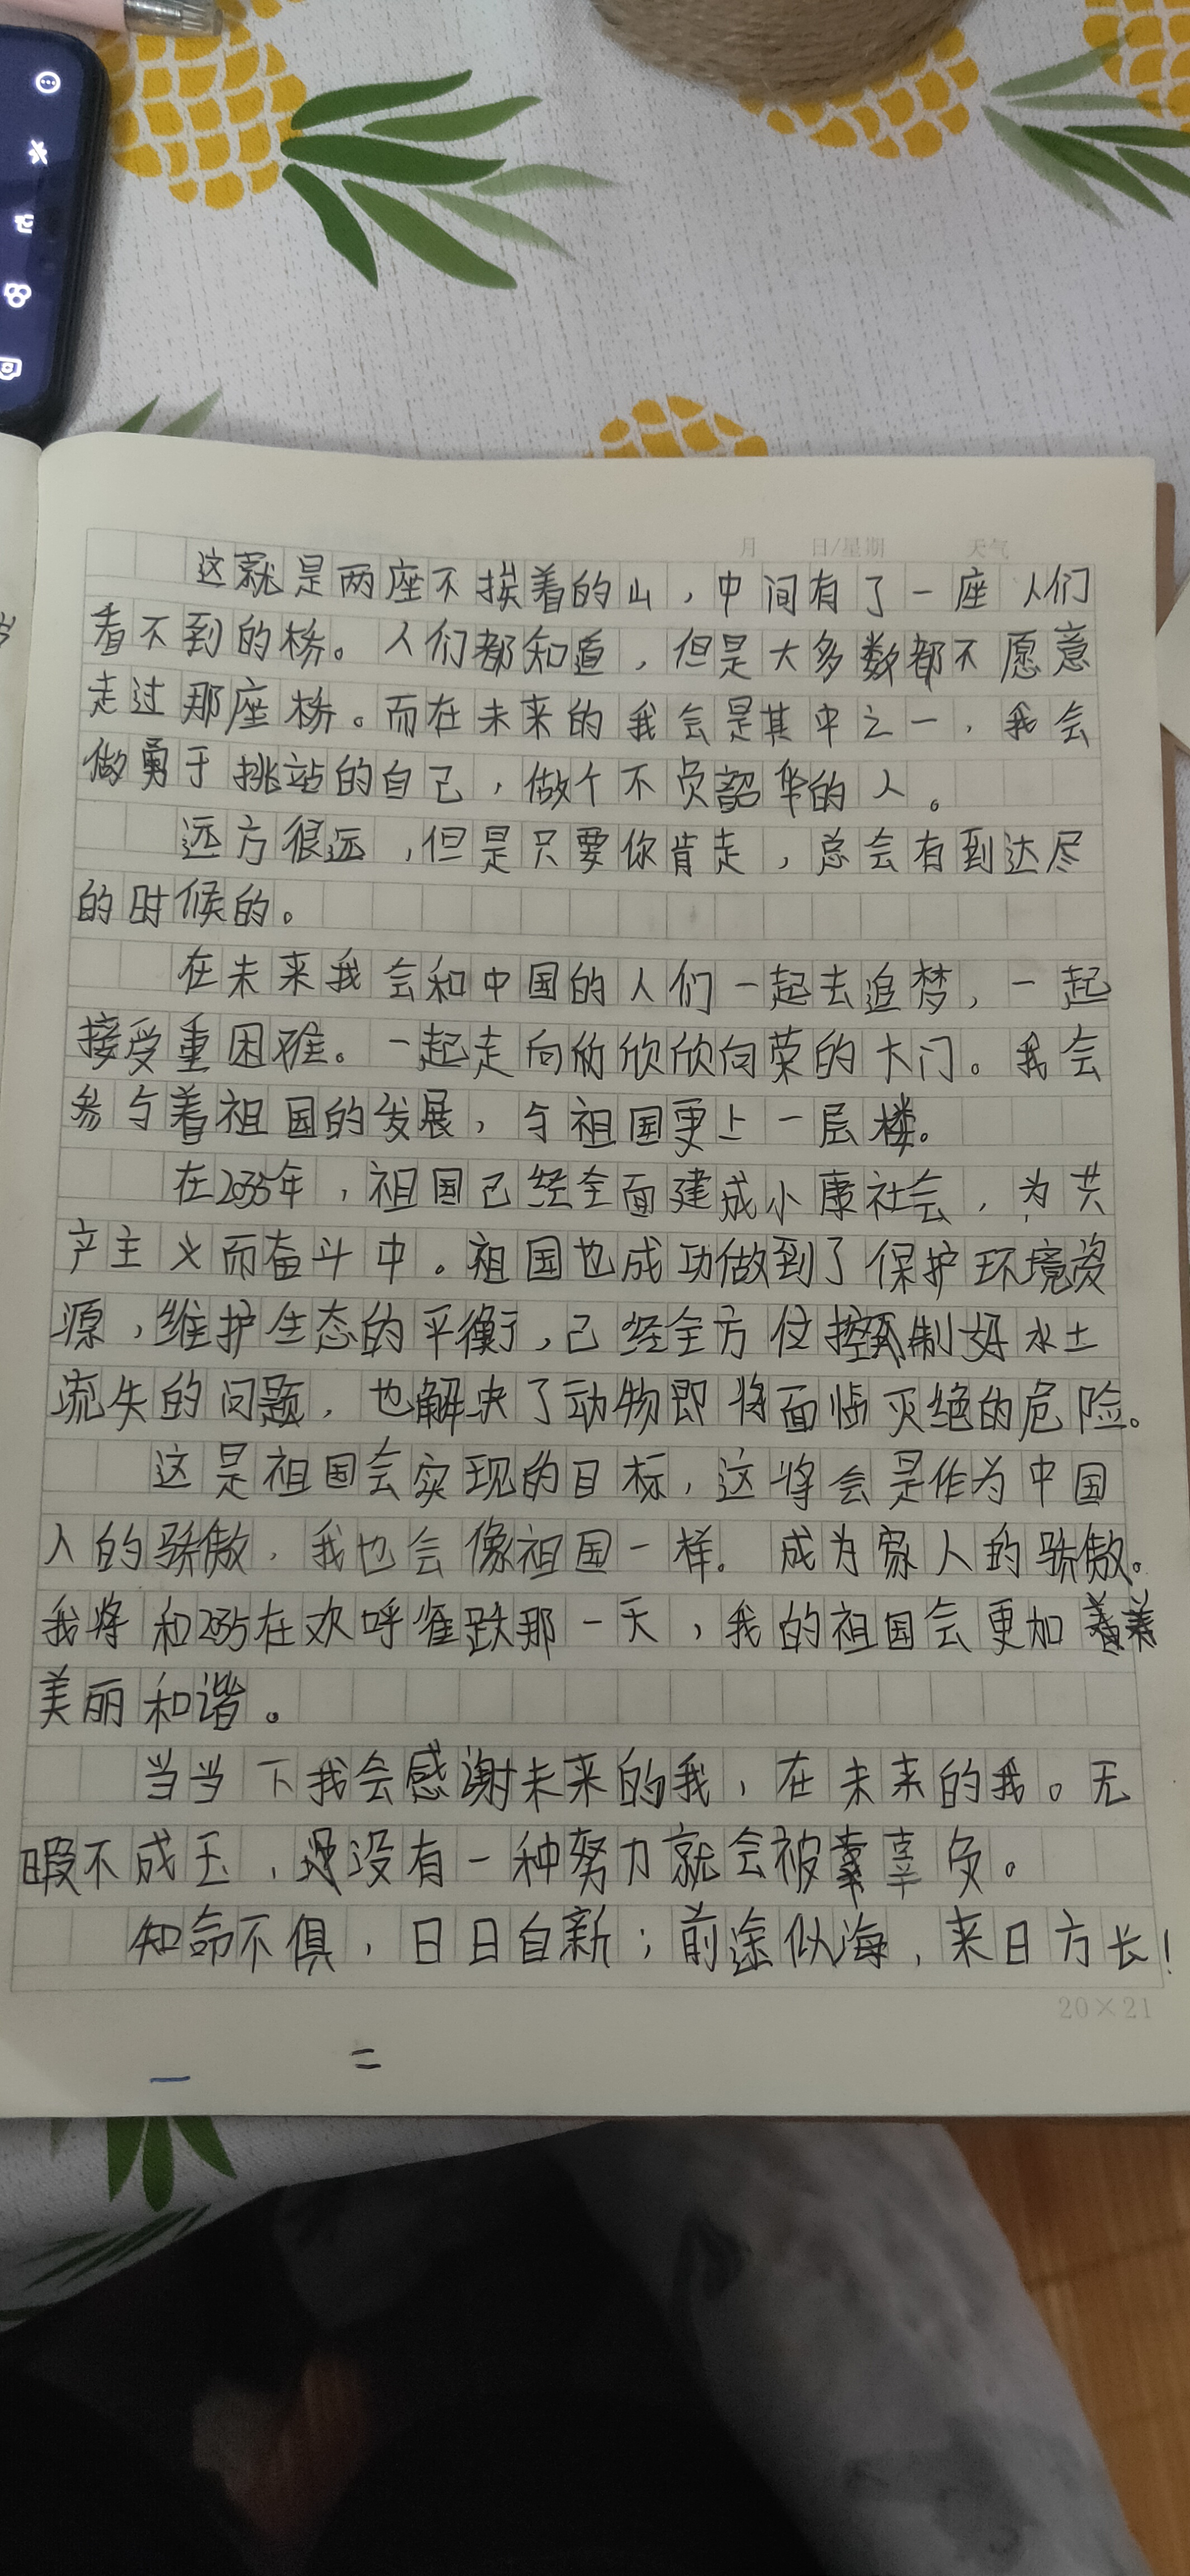 月 日/星期 天气
这就是两座不挨着的山，中间有了一座人们
看不到的桥。人们都知道，但是大多数都不愿意
走过那座桥。而在未来的我会是其中之一，我会
做勇于挑站的自己，做个不负韶华的人。
远方很远，但是只要你肯走，总会有到达尽
的时候的。
在未来我会和中国的人们一起去追梦，一起
接受重困难。一起走向欣欣向荣的大门。我会
参与着祖国的发展，与祖国更上一层楼。
在2035年，祖国已经全面建成小康社会，为共
产主义而奋斗中。祖国也成功做到了保护环境资
源，维护生态的平衡，已经全方位控制好水土
流失的问题，也解决了动物即将面临灭绝的危险。
这是祖国会实现的目标，这将会是作为中国
人的骄傲，我也会像祖国一样。成为家人的骄傲。
我将和2035在欢呼雀跃那一天，我的祖国会更加
美丽和谐。
当当下我会感谢未来的我，在未来的我。无
暇不成玉，没有一种努力就会被辜负。
知命不俱，日日自新；前途似海，来日方长！
20×21
二
一